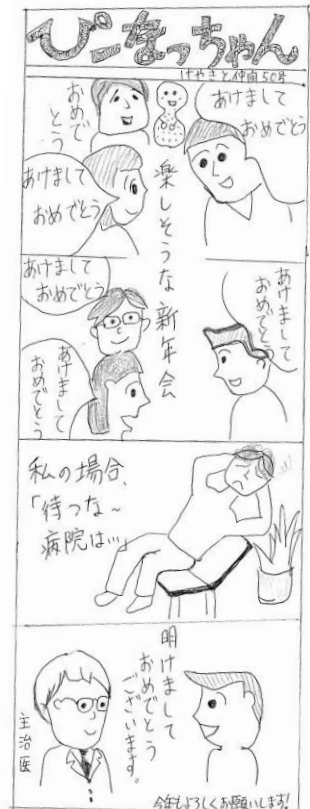 ぴーなっちゃん
けやきと仲間50号
あけまして
おめでとう
おめで
とう
あけまして
おめでとう
楽しそうな新年会
あけまして
おめでとう
あけまして
おめでとう
あけまして
おめでとう
私の場合、
「待つな~
病院は…」
明けまして
おめでとう
ございます。
主治医
…
今年もよろしくお願いします!